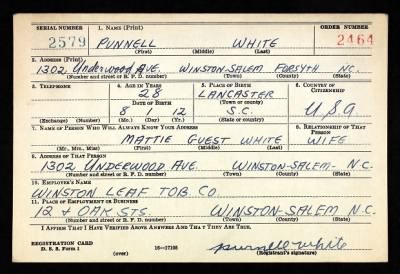 SERIAL NUMBER 1. NAME (Print) ORDER NUMBER
2579 PUNNELL WHITE 2464
(First) (Middle) (Last)
2. ADDRESS (Print)
1302 Underwood AVE. WINSTON-SALEM FORSYTH N.C.
(Number and street or R. F. D. number) (Town) (County) (State)
3. TELEPHONE 4. AGE IN YEARS 5. PLACE OF BIRTH 6. COUNTRY OF CITIZENSHIP
28 LANCASTER
DATE OF BIRTH (Town or county)
8 1 12 S.C. U.S.A
(Exchange) (Number) (Mo.) (Day) (Yr.) (State or country)
7. NAME OF PERSON WHO WILL ALWAYS KNOW YOUR ADDRESS 8. RELATIONSHIP OF THAT PERSON
MATTIE GUEST WHITE WIFE
(Mr., Mrs., Miss) (First) (Middle) (Last)
9. ADDRESS OF THAT PERSON
1302 UNDERWOOD AVE. WINSTON-SALEM- N.C.
(Number and street or R. F. D. number) (Town) (County) (State)
10. EMPLOYER'S NAME
WINSTON LEAF TOB. CO.
11. PLACE OF EMPLOYMENT OR BUSINESS
12 & OAK STS. WINSTON-SALEM N.C.
(Number and street or R. F. D. number) (Town) (County) (State)
I AFFIRM THAT I HAVE VERIFIED ABOVE ANSWERS AND THAT THEY ARE TRUE.
REGISTRATION CARD
D. S. S. Form 1 16-17105 purnell white
(over) (Registrant's signature)